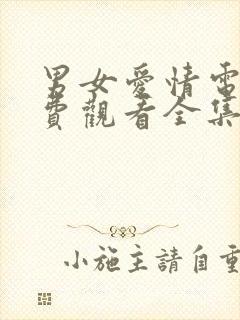 男女愛情電
費觀看全集
小施主請自重